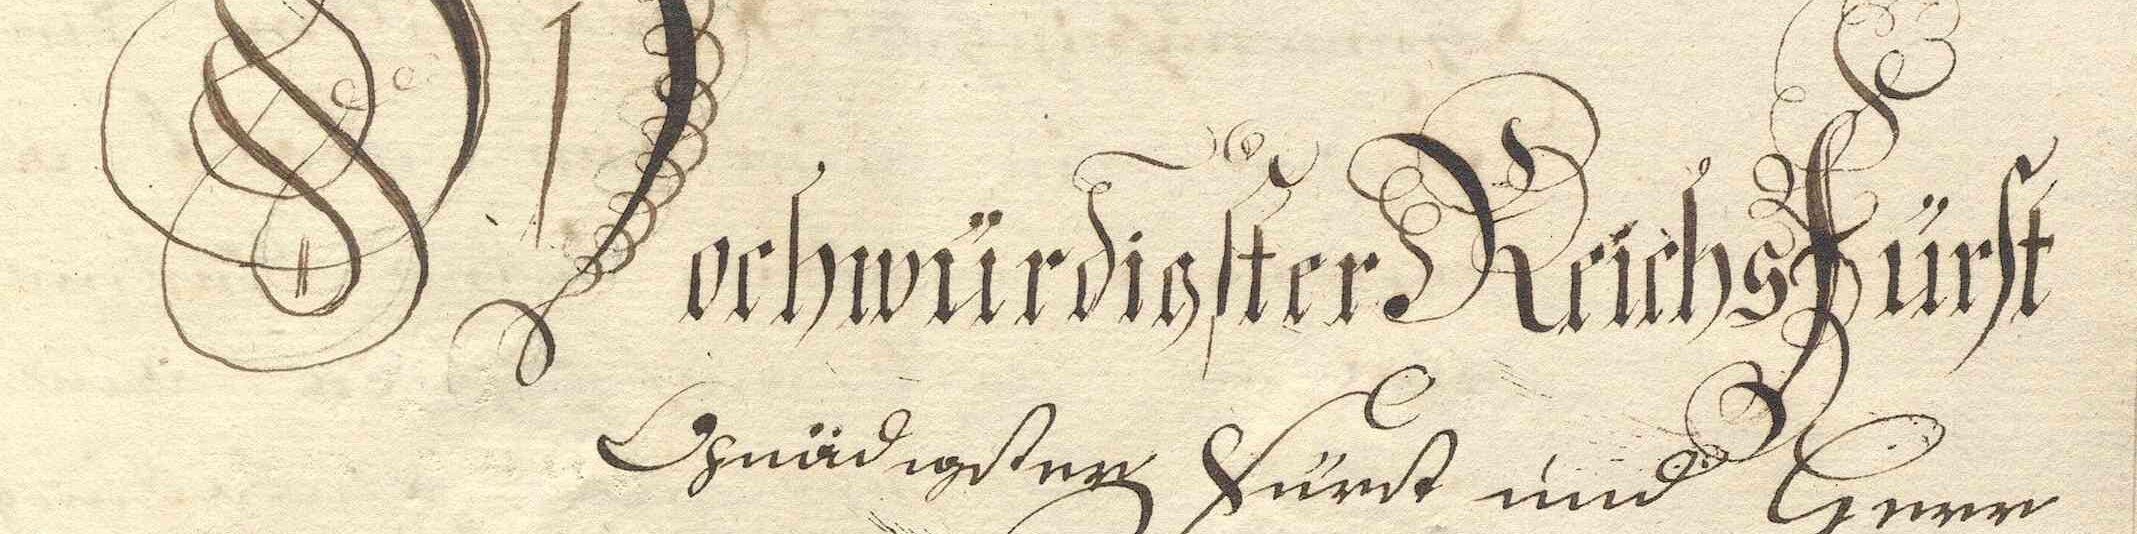 Hochwürdigster ReichsFürst
Gnädigster Fürst und Herr